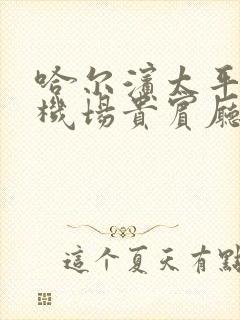 哈尔濱太平
機場貴賓廳
這个夏天有點